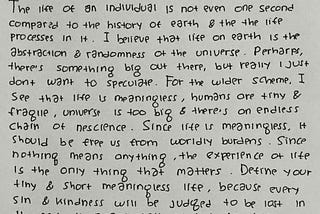 The life of an individual is not even one second
compared to the history of earth & the the life
processes in it. I believe that life on earth is the
abstraction & randomness of the universe. Perhaps,
there's something big out there, but really i just
dont want to speculate. For the wider scheme, I
see that life is meaningless, humans are tiny &
fragile, universe is too big & there's on endless
chain of nescience. Since life is meaningless, it
should be free us from worldly burdens. Since
nothing means anything, the experience of life
is the only thing that matters. Define your
tiny & short meaningless life, because every
sin & kindness will be judged to be lost in